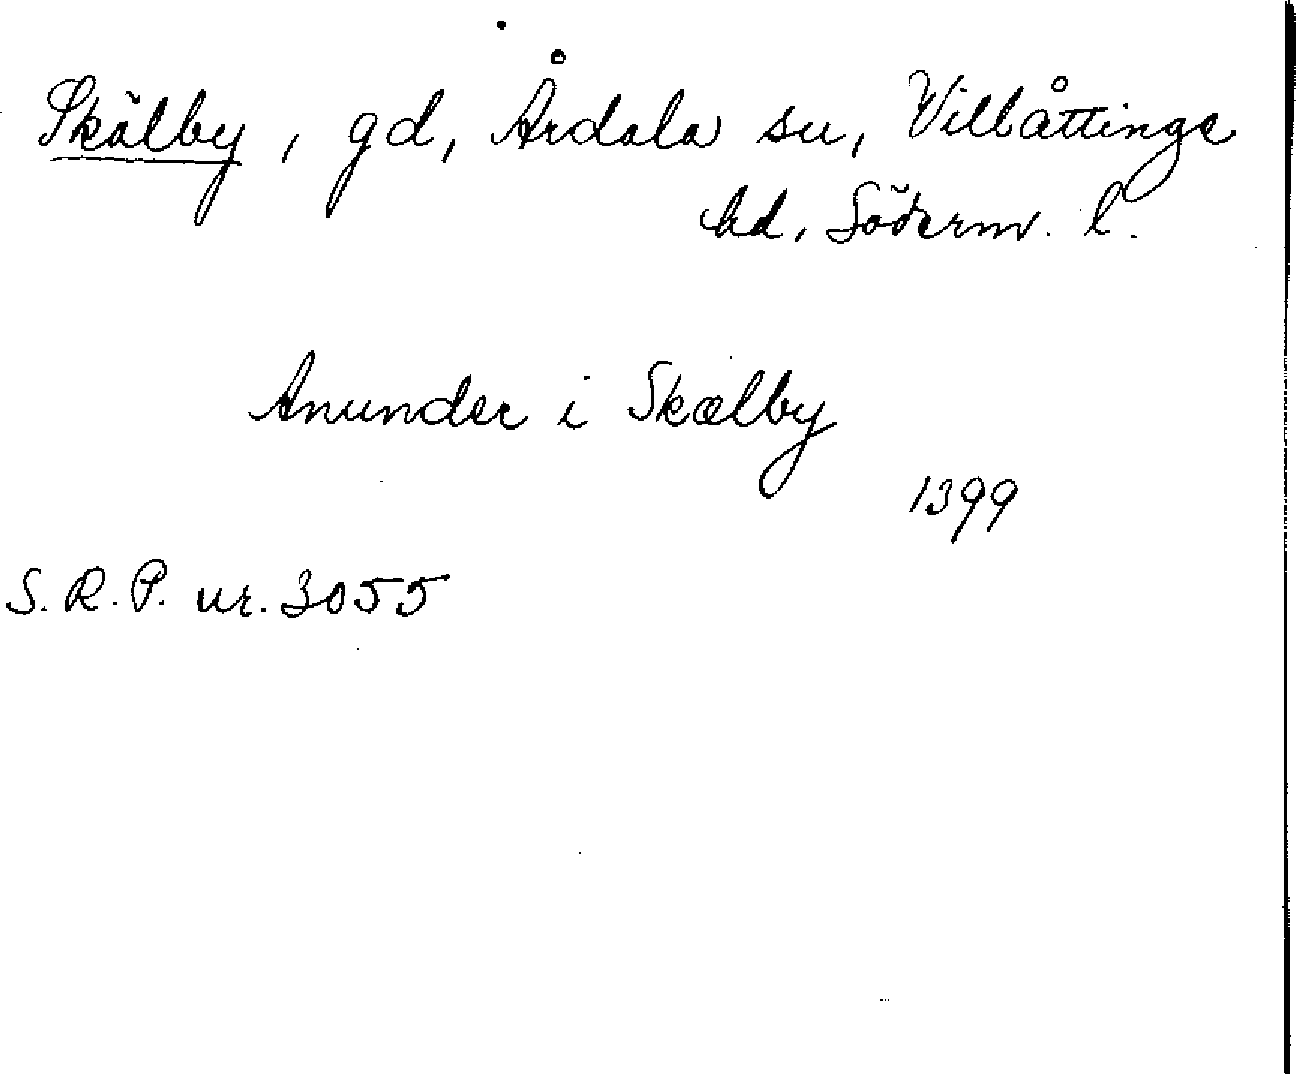 Skälby, gd, Årdala sn, Villåttinge
hd, Söderm. l.
Anunder i Skælby
1399
S.R.P. nr. 3055